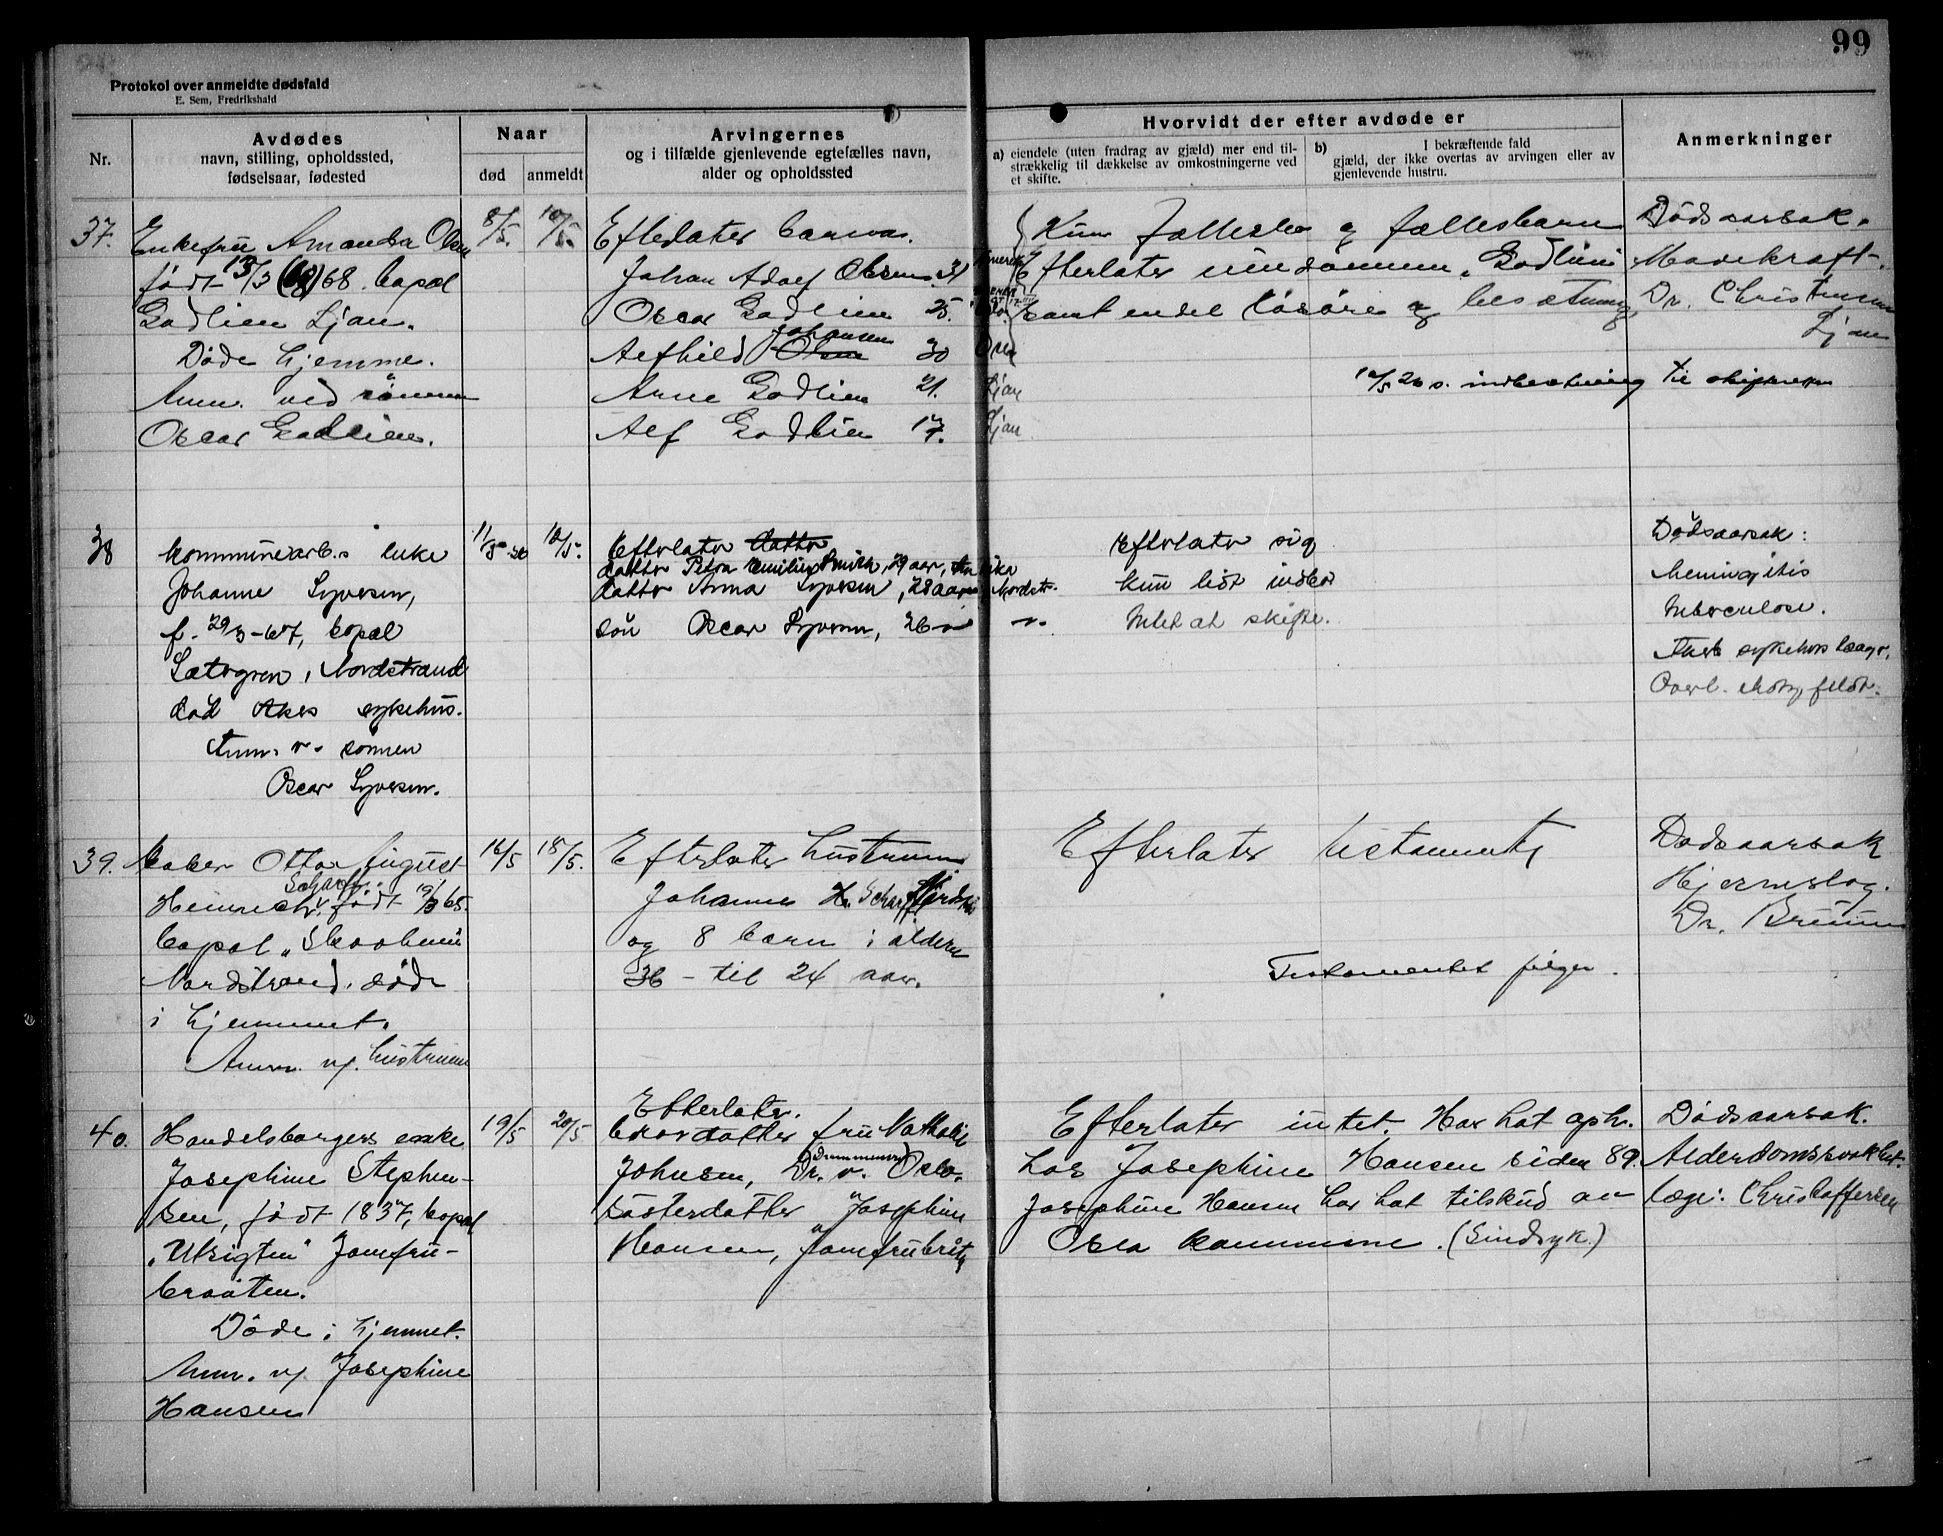 99
Protokol over anmeldte dødsfald
E. Sem, Fredrikshald
Nr.
Avdødes
navn, stilling, opholdssted,
fødselsaar, fødested
Naar
død anmeldt
Arvingernes
og i tilfælde gjenlevende egtefælles navn,
alder og opholdssted
Hvorvidt der efter avdøde er
a) eiendele (uten fradrag av gjæld) mer end til-
strækkelig til dækkelse av omkostningerne ved
et skifte.
b) I bekræftende fald
gjæld, der ikke overtas av arvingen eller av
gjenlevende hustru.
Anmerkninger
37.
Enkefru Amanda Olsen
født 13/3 68. bopæl
Godlien Ljan.
Døde hjemme.
Anm. ved sønnen
Oscar Godlien.
8/5. 10/5.
Efterlater barna.
Johan Adolf Olsen. 31
Oscar Godlien 25.
Alfhild Olsen Johansen 30 Oslo
Arne Godlien 21. Ljan
Alf Godlien 17. Ljan
Kun fælles og fællesbarn
Efterlater eiendommen "Godlien"
samt endel løsøre og besætning,
12/5 26 s. indberetning til skifteretten
Dødsaarsak.
Mavekræft.
Dr. Christensen
Ljan
38
Kommunearb.s enke
Johanne Syversen,
f. 29/3-67, bopæl
Sætegren, Nordstrand
død Akers sykehus.
Anm. v. sønnen
Oscar Syversen.
11/5-26 12/5.
Efterlater datter
datter Petra Emilie Smith, 29 aar,
datter Anna Syversen, 28 aar, Nordstr.
søn Oscar Syversen, 26 " "
Efterlater sig
kun lidt indbo
Intet at skifte.
Dødsaarsak:
Meningitis
tuberculose.
Akers sykehus læge,
Overl. Motzfeldt.
39.
Baker Otto August
Heinrich Scharff. født 19/3 65.
bopæl "Skooheim"
Nordstrand. døde
i hjemmet.
Anm. v/. hustruen
16/5 18/5.
Efterlater hustruen
Johanne H. Scharff Nordstr.
og 8 barn i alderen
36 - til 24 aar.
Efterlater testamente
Testamentet følger.
Dødsaarsak
Hjerneslag.
Dr. Bruun
40.
Handelsborgers enke
Josephine Stephen-
sen, født 1837, bopæl
"Utsigten" Jomfru-
braaten.
Døde i hjemmet.
Anm. v/. Josephine
Hansen
19/5 20/5
Efterlater.
brordatter fru Nathalie
Johnsen, Dr. v. Oslo.
søsterdatter Josephine
Hansen, Jomfrubråten
Efterlater intet. Har hat oph.
hos Josephine Hansen siden 89.
Josephine Hansen har hat tilskud av
Oslo kommune. (Sindsyk.)
Dødsaarsak.
Alderdomssvakhet.
læge: Christoffersen